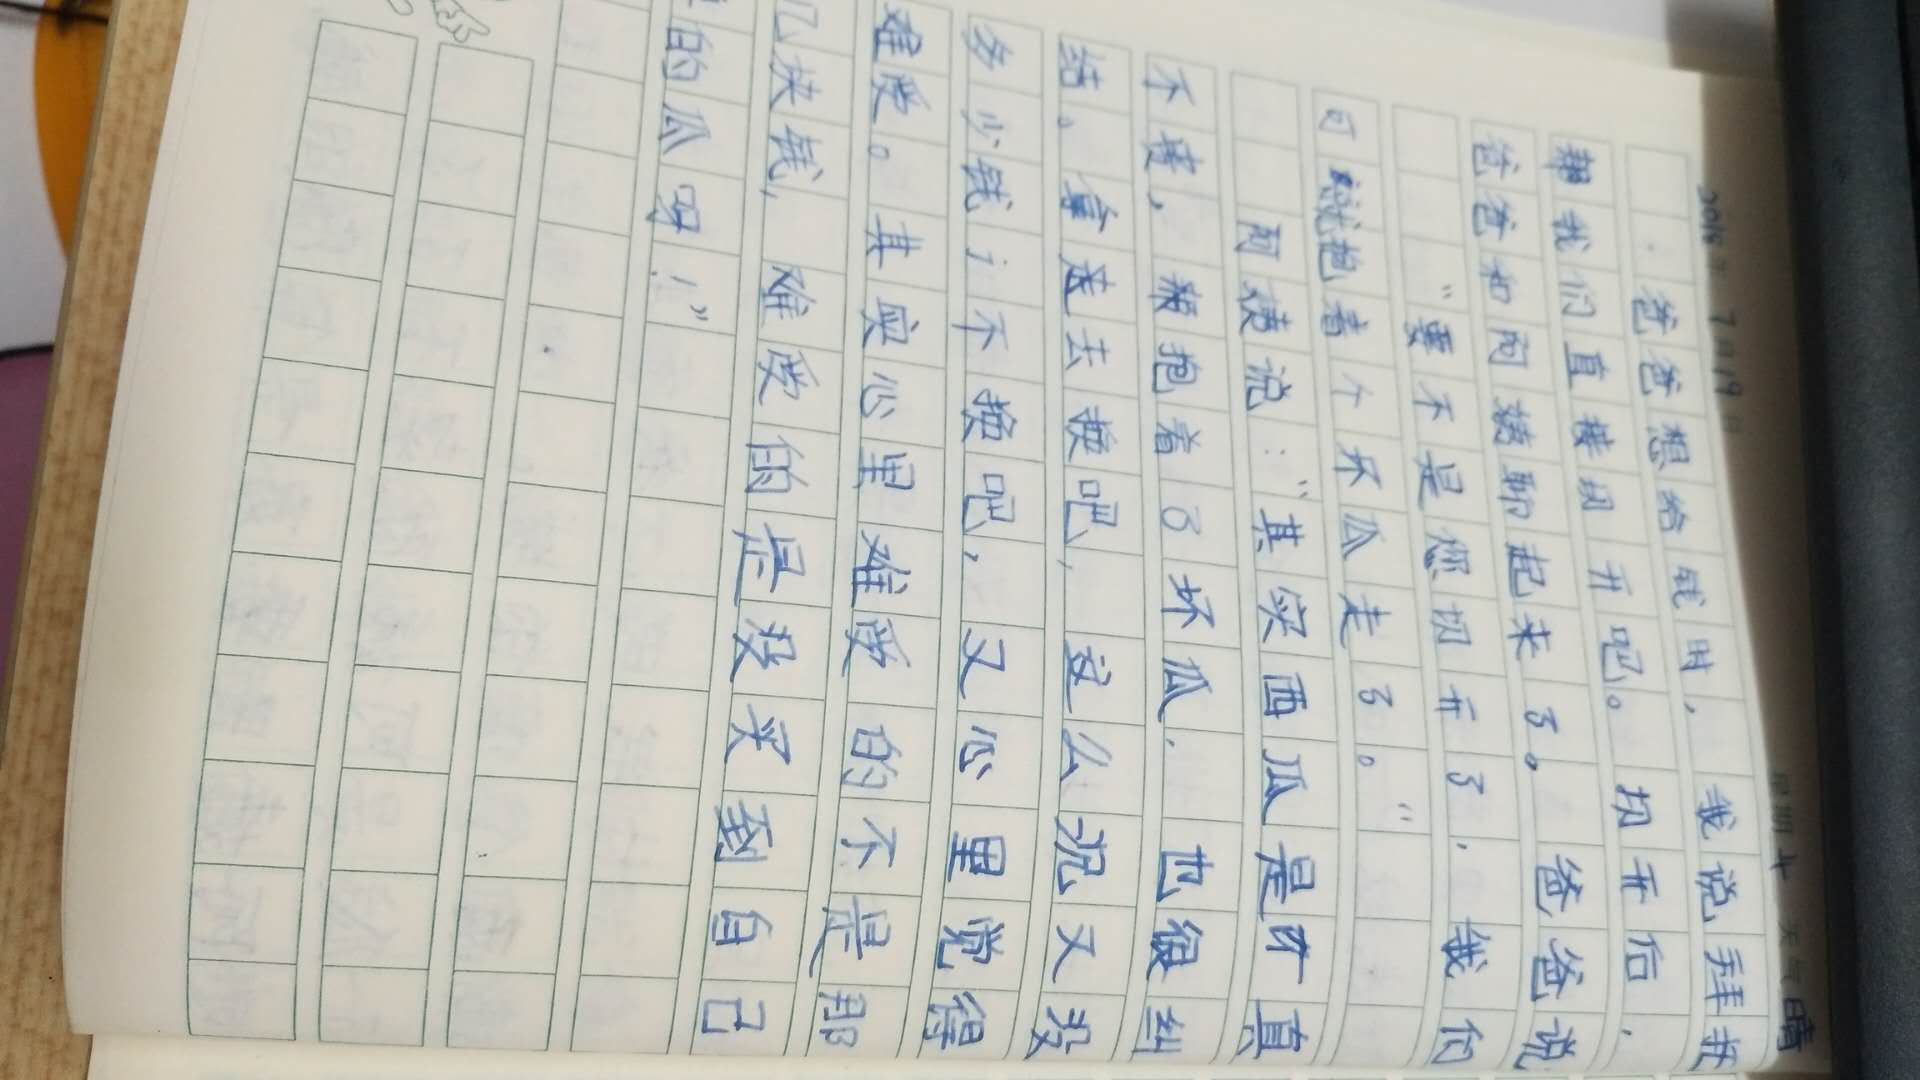 7月19日 星期 天气晴
爸爸想给钱时,我说拜托
帮我们直接切开吧。切开后,
爸爸和阿姨聊起来了。爸爸说
“要不是您切开了,我们
可就抱着个坏瓜走了。”
阿姨说:“其实西瓜是 真
不 , 抱着了坏瓜.也很纠
结。拿 去换吧,这么沉又没
多少钱;不换吧,又心里觉得
难受。其实心里难受的不是那
几块钱,难受的是没买到自己
的瓜呀!”